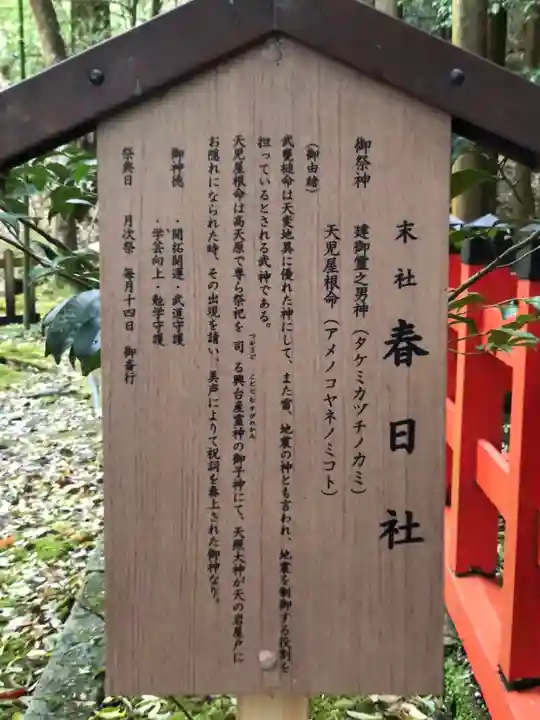 末社 春日社
御祭神 建御雷之男神(タケミカヅチノカミ)
天児屋根命(アメノコヤネノミコト)
(御由緒)
武甕槌命は天業地異に優れた神にして、また雷、地震の神とも言われ、地震を制御する役割を
担っているとされる武神である。
天児屋根命は高天原で専ら祭祀を司る興台産霊神の御子神にて、天照大神が天の岩屋戸に
お隠れになられた時、その出現を請い、美声によりて祝詞を奏上された御神なり。
御神徳 ・開拓開運・武道守護
・学芸向上・勉学守護
祭典日 月次祭 毎月十四日 御斎行